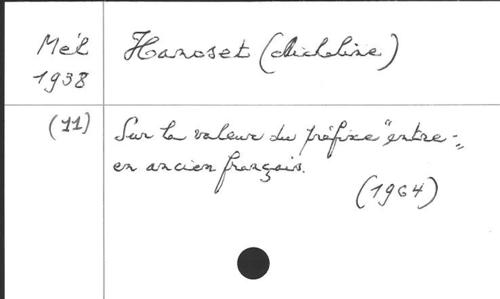 Mél
1938
Hanoset (Micheline)
(11)
Sur la valeur du préfixe "entre-"
en ancien français.
(1964)